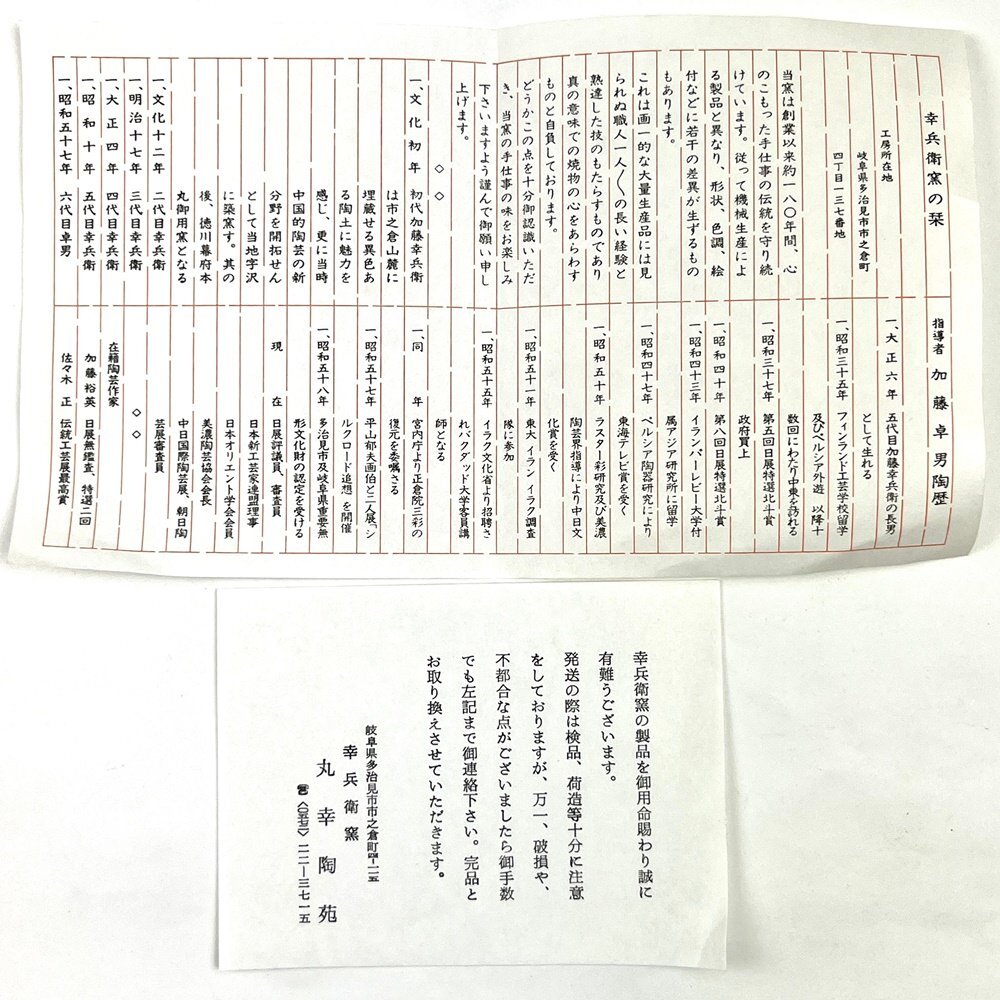 幸兵衛窯の栞
工房所在地
岐阜県多治見市市之倉町
四丁目一三七番地
当窯は創業以来約一八〇年間、心
のこもった手仕事の伝統を守り続
けています。従って機械生産によ
る製品と異なり、形状、色調、絵
付などに若干の差異が生ずるもの
もあります。
これは画一的な大量生産品には見
られぬ職人一人〱の長い経験と
熟達した技のもたらすものであり
真の意味での焼物の心をあらわす
ものと自負しております。
どうかこの点を十分御認識いただ
き、当窯の手仕事の味をお楽しみ
下さいますよう謹んで御願い申し
上げます。
◇ ◇
一、文化初年 初代加藤幸兵衛
は市之倉山麓に
埋蔵せる異色あ
る陶土に魅力を
感じ、更に当時
中国的陶芸の新
分野を開拓せん
として当地字沢
に築窯す。其の
後、徳川幕府本
丸御用窯となる
一、文化十二年 二代目幸兵衛
一、明治十七年 三代目幸兵衛
一、大正四年 四代目幸兵衛
一、昭和十年 五代目幸兵衛
一、昭和五十七年 六代目卓男
指導者 加藤卓男陶歴
一、大正六年 五代目加藤幸兵衛の長男
として生れる
一、昭和三十五年 フィンランド工芸学校留学
及びペルシア外遊 以降十
数回にわたり中東を訪れる
一、昭和三十七年 第五回日展特選北斗賞
政府買上
一、昭和四十年 第八回日展特選北斗賞
一、昭和四十三年 イランパーレビー大学付
属アジア研究所に留学
一、昭和四十七年 ペルシア陶器研究により
東海テレビ賞を受く
一、昭和五十年 ラスター彩研究及び美濃
陶芸界指導により中日文
化賞を受く
一、昭和五十一年 東大イランイラク調査
隊に参加
一、昭和五十五年 イラク文化省より招聘さ
れバクダッド大学客員講
師となる
一、同年 宮内庁より正倉院三彩の
復元を委嘱さる
一、昭和五十七年 平山郁夫画伯と二人展「シ
ルクロード追想」を開催
一、昭和五十八年 多治見市及岐阜県重要無
形文化財の認定を受ける
現在 日展評議員、審査員
日本新工芸家連盟理事
日本オリエント学会会員
美濃陶芸協会会長
中日国際陶芸展、朝日陶
芸展審査員
◇ ◇
在籍陶芸作家
加藤裕英 日展無鑑査、特選二回
佐々木正 伝統工芸展最高賞
幸兵衛窯の製品を御用命賜わり誠に
有難うございます。
発送の際は検品、荷造等十分に注意
をしておりますが、万一、破損や、
不都合な点がございましたら御手数
でも左記まで御連絡下さい。完品と
お取り換えさせていただきます。
岐阜県多治見市市之倉町
幸兵衛窯
丸幸陶苑
二二―三七一五